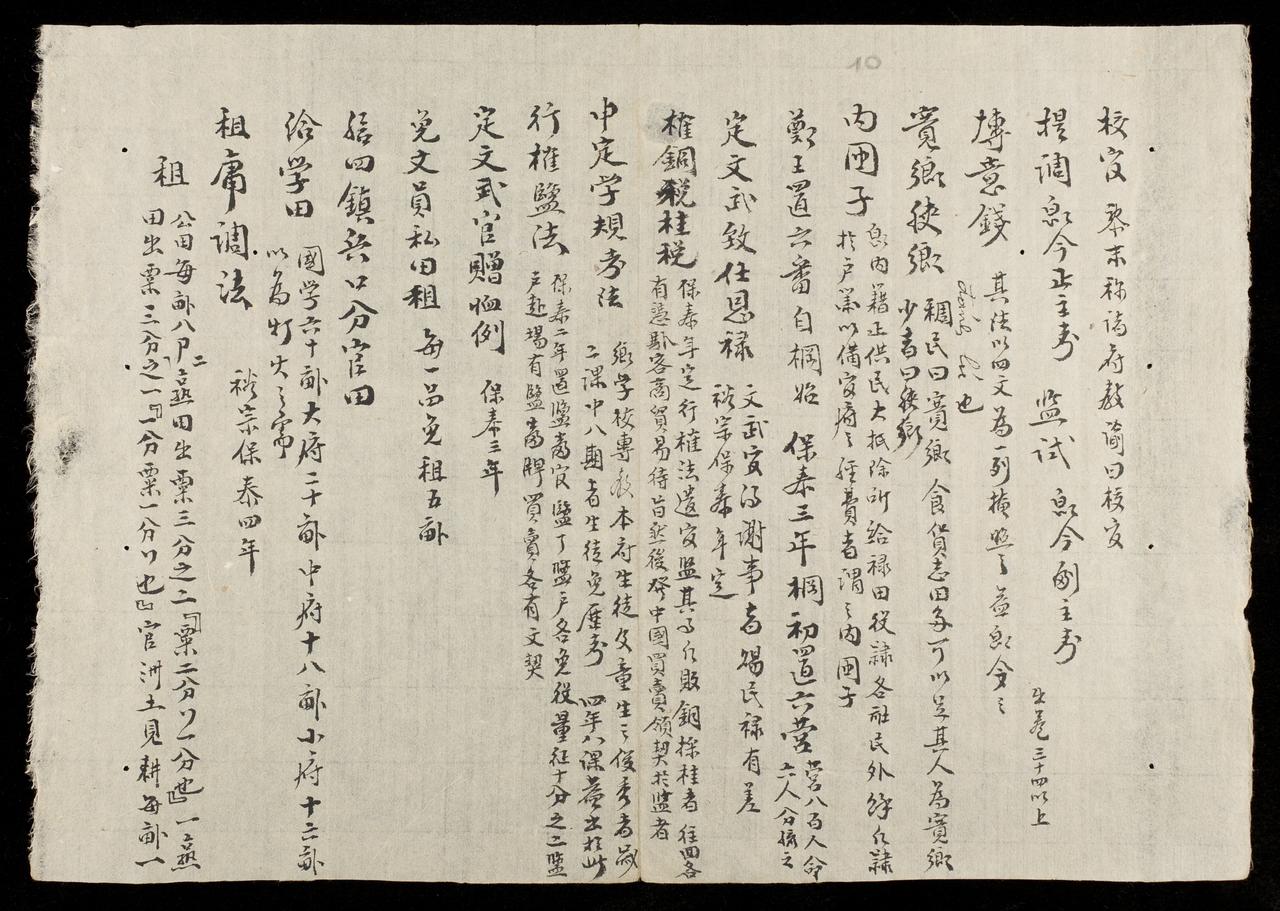 校官 黎末称諸府教諭曰校官
提調 即今正主考 監試 即今副主考
右卷三十四以上
摶意錢 其法以四文為一列掩照之 蓋即今之
也
寬鄉狹鄉 稠民曰寬鄉 食貨志田多可以足其人為寬鄉
少者曰狹鄉
內囲子 畿內籍正供民大抵除所給祿田役隷各社民外餘以隷
於戶番以備官府之經費者謂之內囲子
鄭王置六番自棡始 保泰三年棡初置六營 營八百人命
六人分掌之
定文武致仕恩祿 文武官得謝事者賜民祿有差
裕宗保泰年定
榷銅税桂税 保泰年定行榷法遣官監其事以收銅採桂者往四各
有憑馱客商貿易待旨然後發中國買賣領契於監者
申定学規考法 鄉学校專教本府生徒及童生之俊秀者歲
二課中八期者生徒免歷考 四年八課蓋出於此
行榷鹽法 保泰二年置監當官 鹽丁鹽戶各免役量征十分之二鹽
戶赴場有監當牌買賣各有文契
定文武官贈恤例 保泰三年
免文員私田租 每一品免租五畝
給四鎮兵口分官田
給学田 國学六十畝大府二十畝中府十八畝小府十六畝
以為灯火之需 裕宗保泰四年
租庸調法
租 公田每畝八尸二熟田出粟三分之二『粟二分以一分也』一熟
田出粟三分之一『一分粟一分以也』官洲土見耕每畝一
10